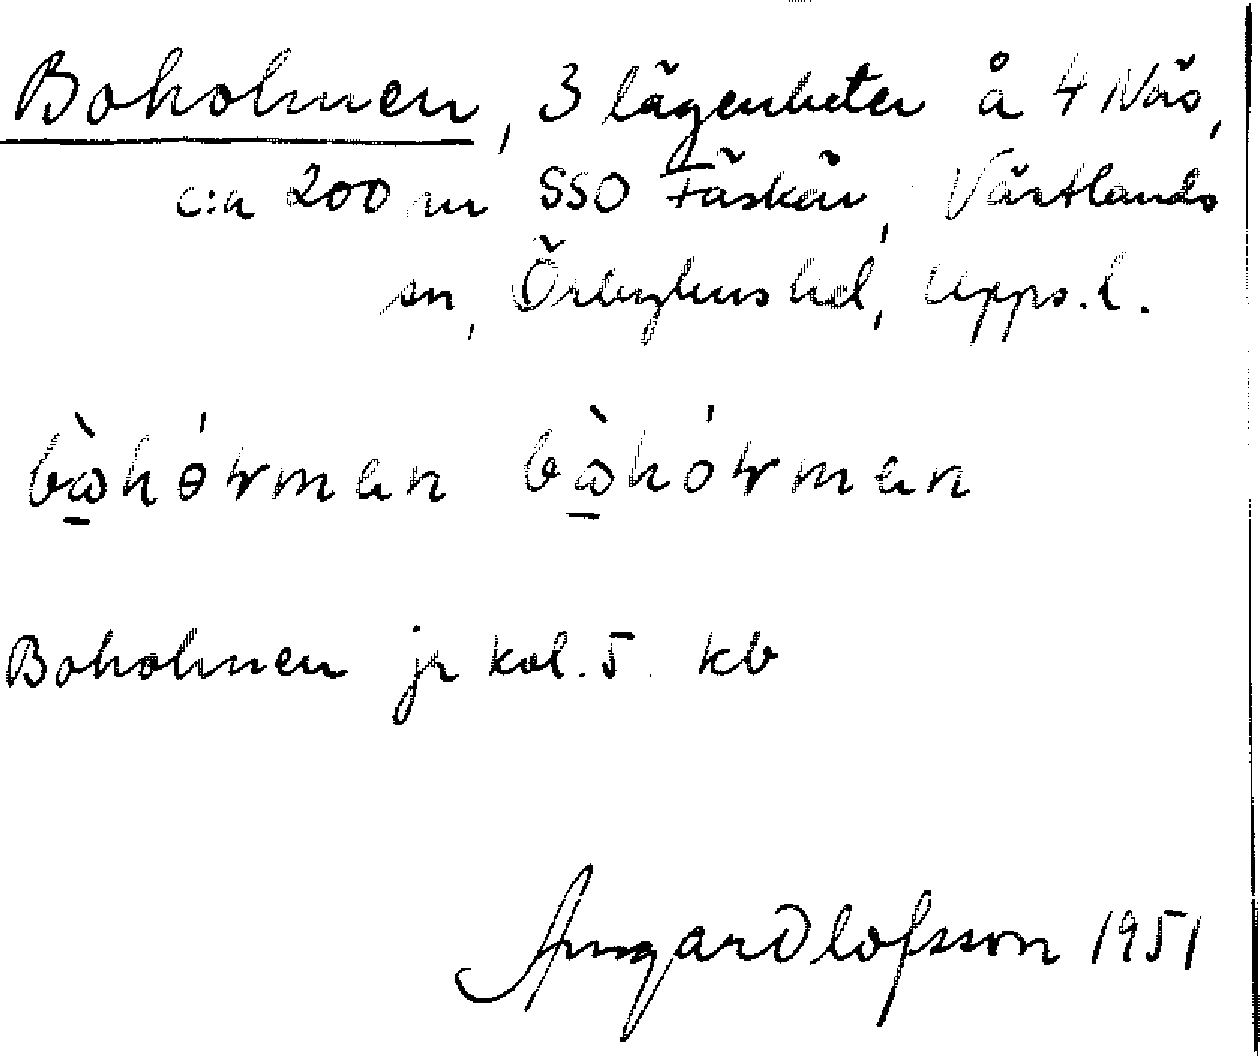 Boholmen, 3 lägenheter å 4 Näs,
c:a 200 m SSO Fäskär, Västlands
sn, Örbyhus hd, Upps. l.
bὼhó̵ɫman bὼhóɫman
Boholmen jr kol. 5. kb
Olofsson 1951